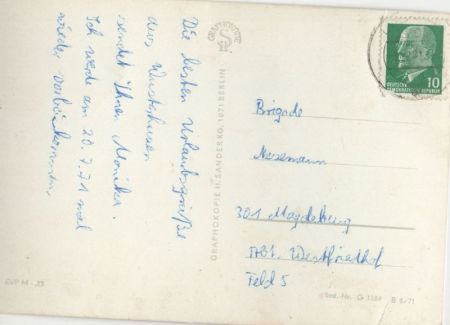 Die besten Urlaubsgrüße
aus Wusterhusen
sendet Ihnen Monika.
Ich werde am 20.7.71 mal
wieder vorbeikommen.
GRAPHOKOPIE
GRAPHOKOPIE H. SANDER KG, 1071 BERLIN
10
DEUTSCHE
DEMOKRATISCHE REPUBLIK
Brigade
Nesemann
301 Magdeburg
Abt. Westfriedhof
Feld 5
EVP M -,25
Best.-Nr. G 1159 B 5/71